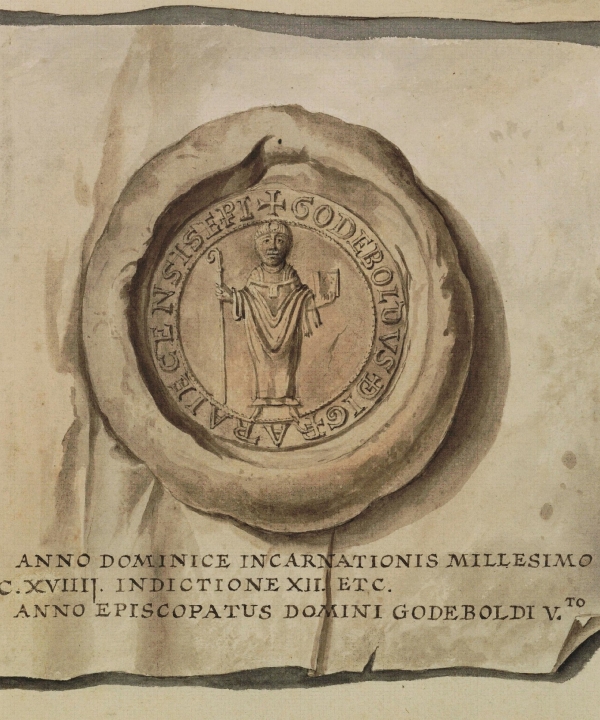 ✠ GODEBOLDVS DI GRA TRAIECENSIS EPI
ANNO DOMINICE INCARNATIONIS MILLESIMO
C. XVIIIJ. INDICTIONE XII. ETC.
ANNO EPISCOPATUS DOMINI GODEBOLDI V.TO